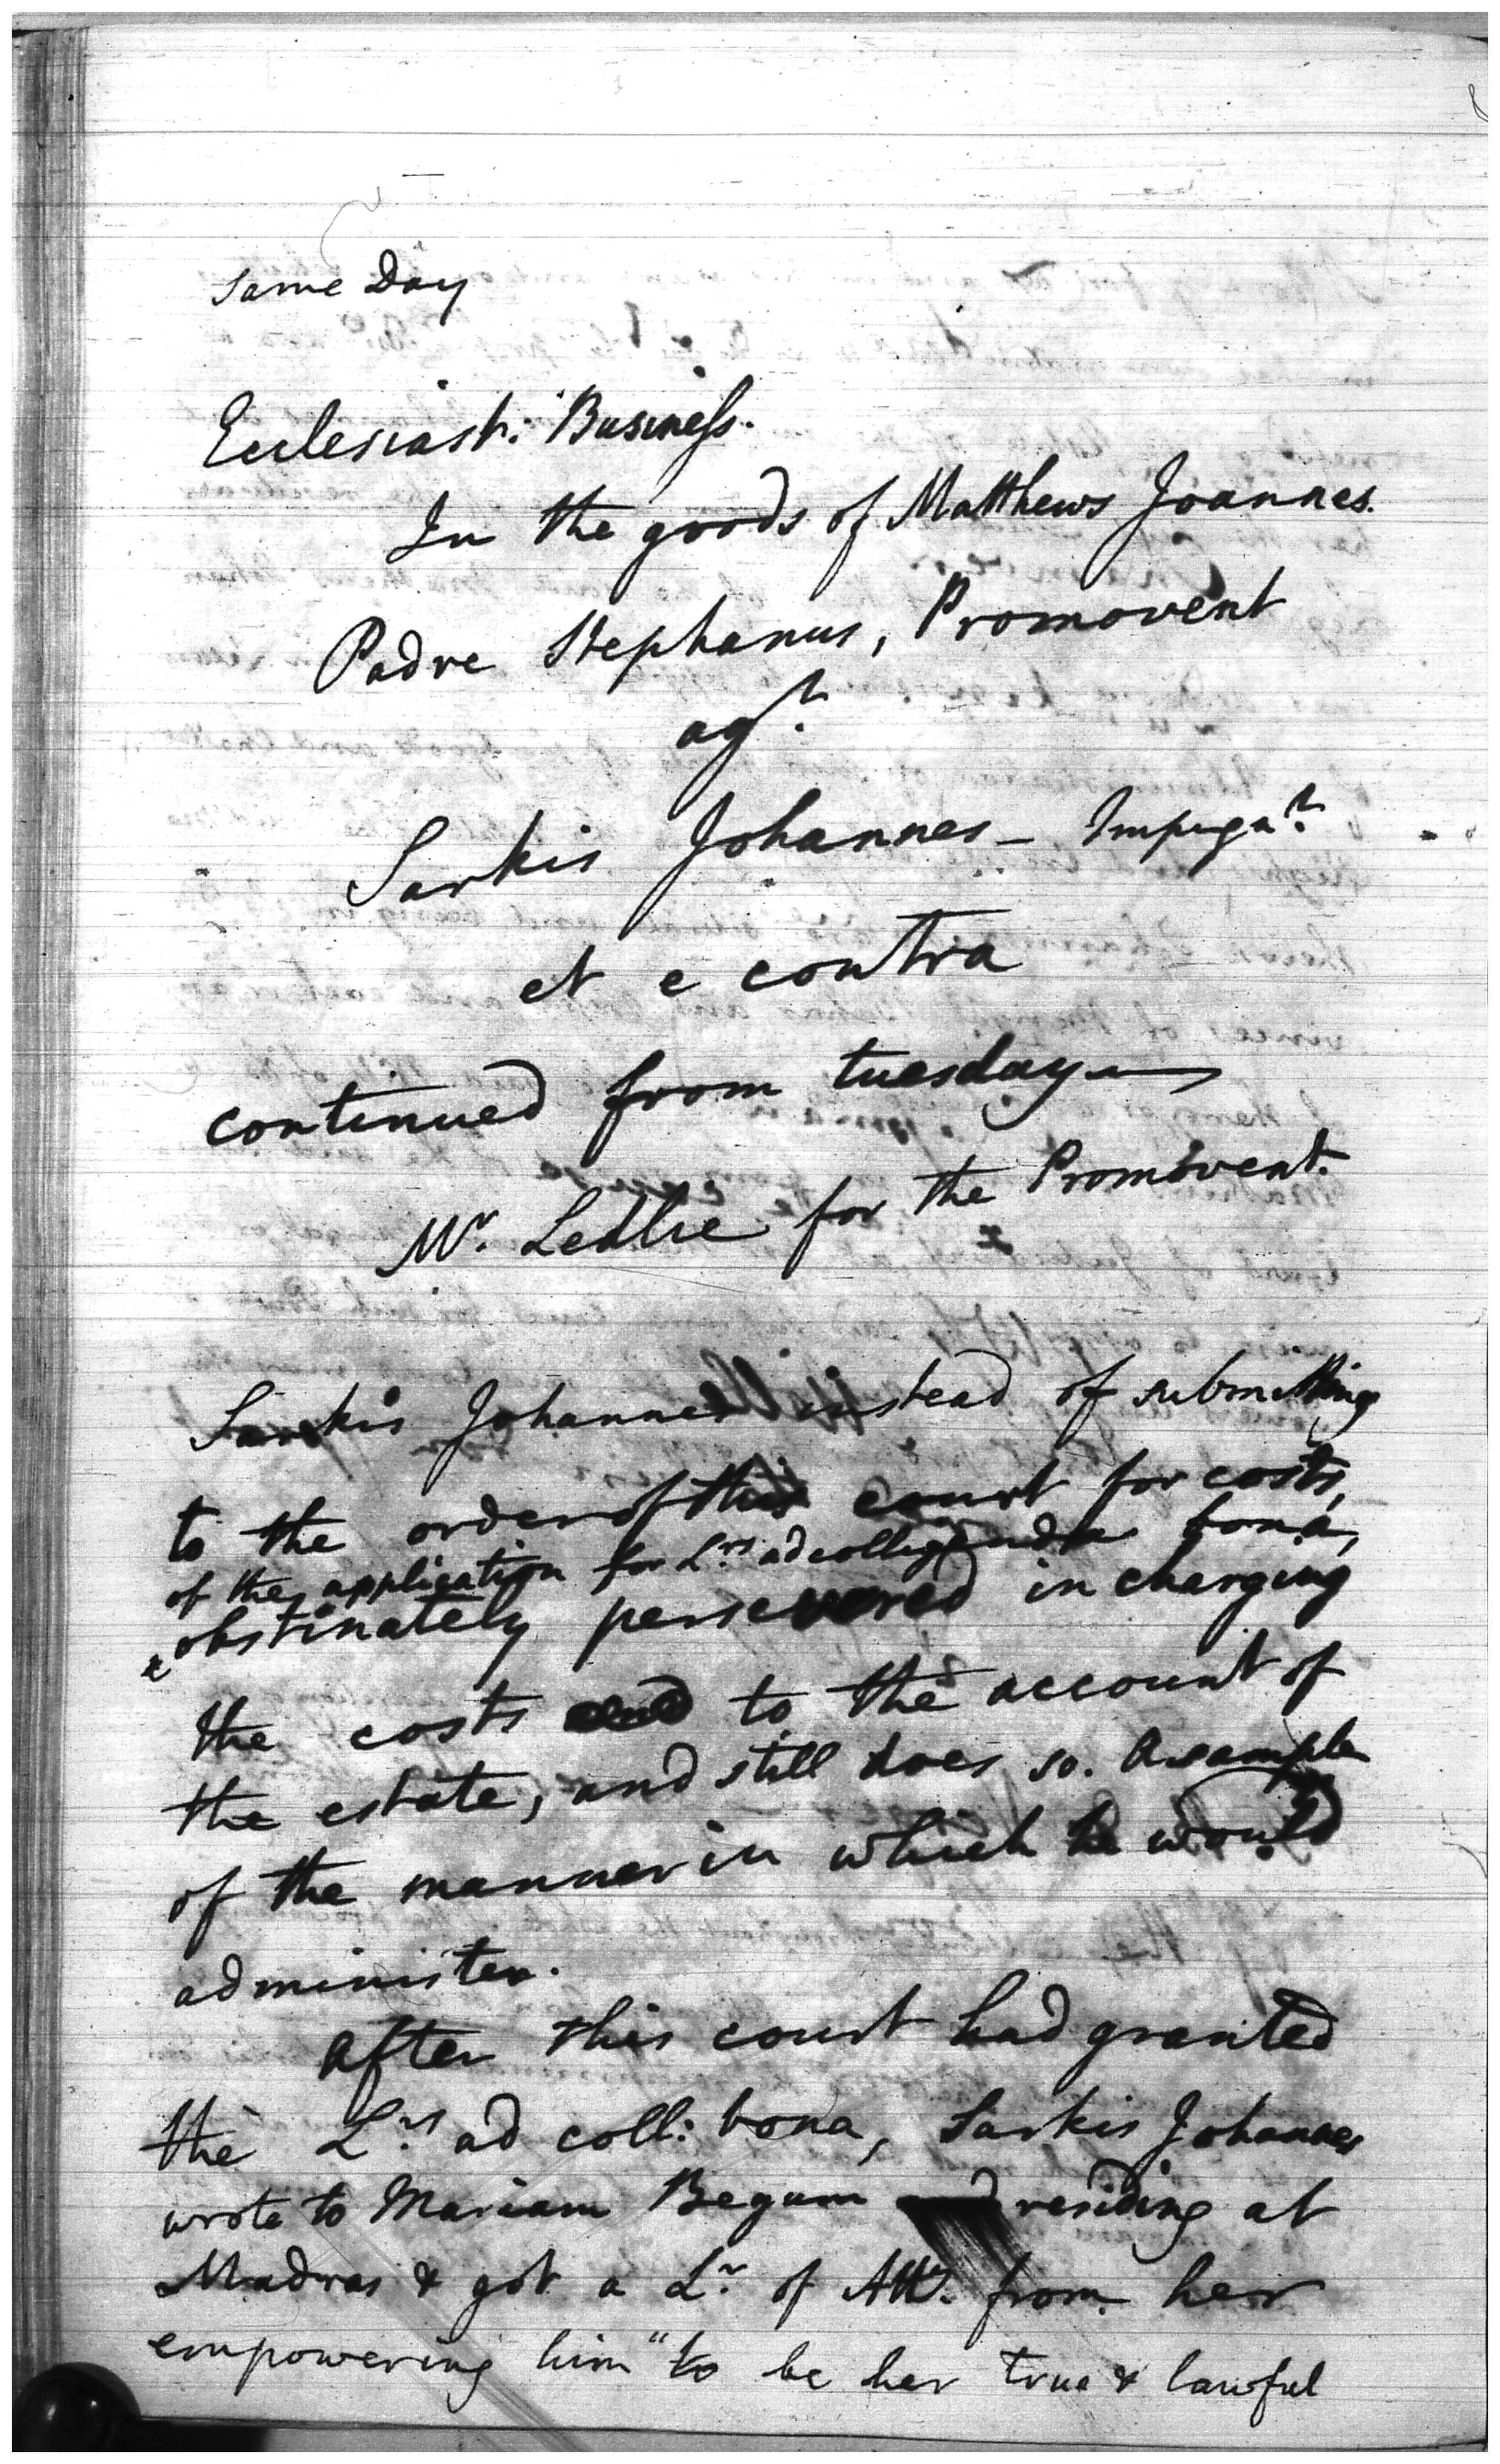 Same Day
Ecclesiasti: Business.
In the goods of Matthews Joannes.
Padre Stephanus, Promovent
agt.
Sarkis Johannes - Impugnt.
et e contra
continued from tuesday
Mr. Ledlie for the Promovent.
Sarkis Johannes instead of submitting
to the order of this court for costs,
of the application for Lrs ad colligenda bona,
obstinately persevered in charging
the costs to the account of
the estate, and still does so. A sample
of the manner in which he would
administer.
After this court had granted
the Lrs ad coll: bona, Sarkis Johannes
wrote to Mariam Begum residing at
Madras & got a Lr. of Atty. from her
empowering him "to be her true & lawful